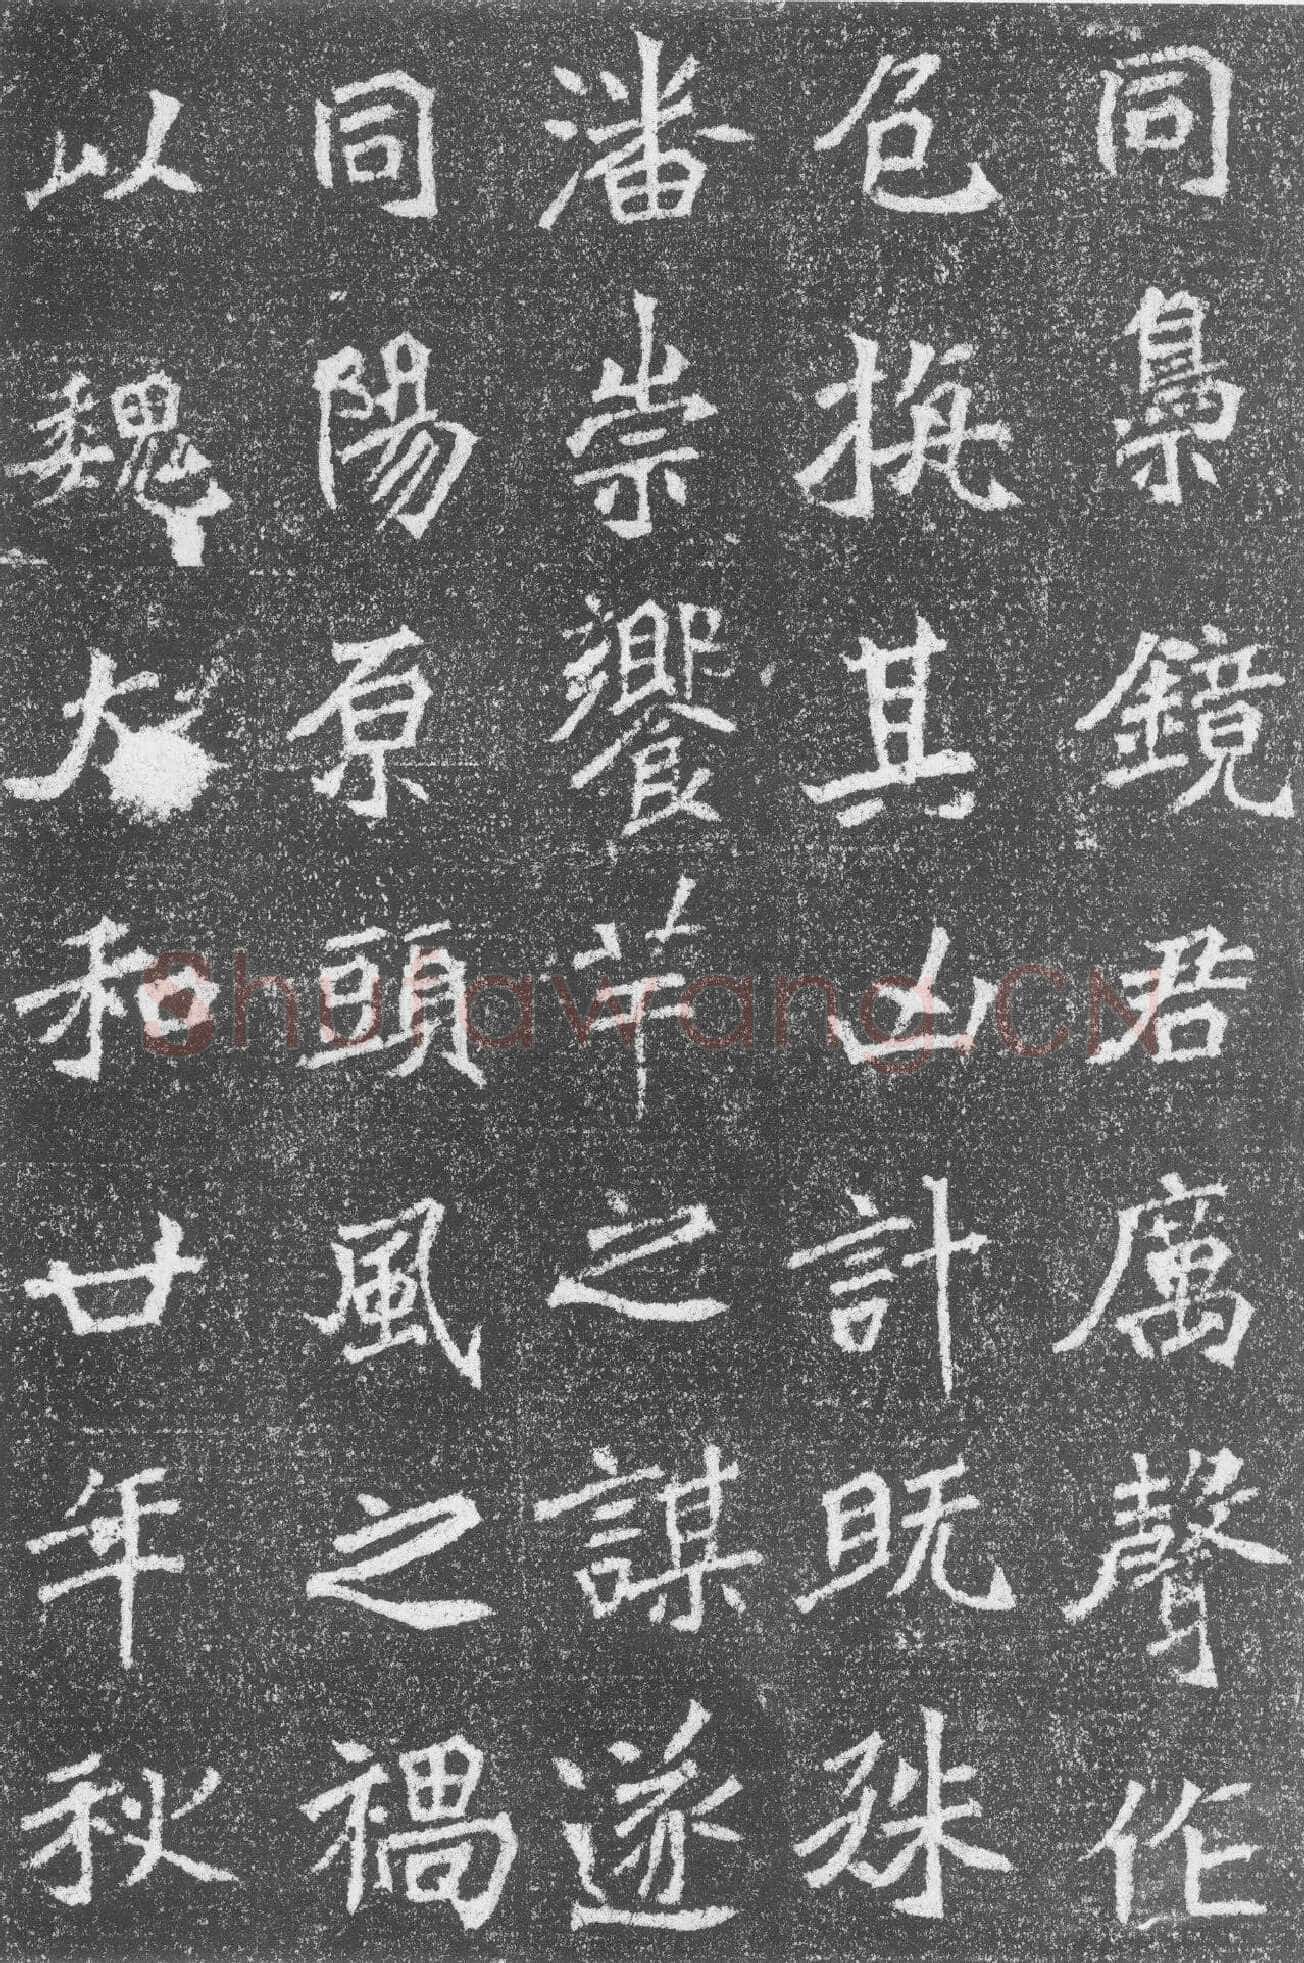 同梟鏡君厲聲作
色執其凶計既殊
潘崇饗羋之謀遂
同陽原頭風之禍
以魏太和廿年秋
Shufawang.CN